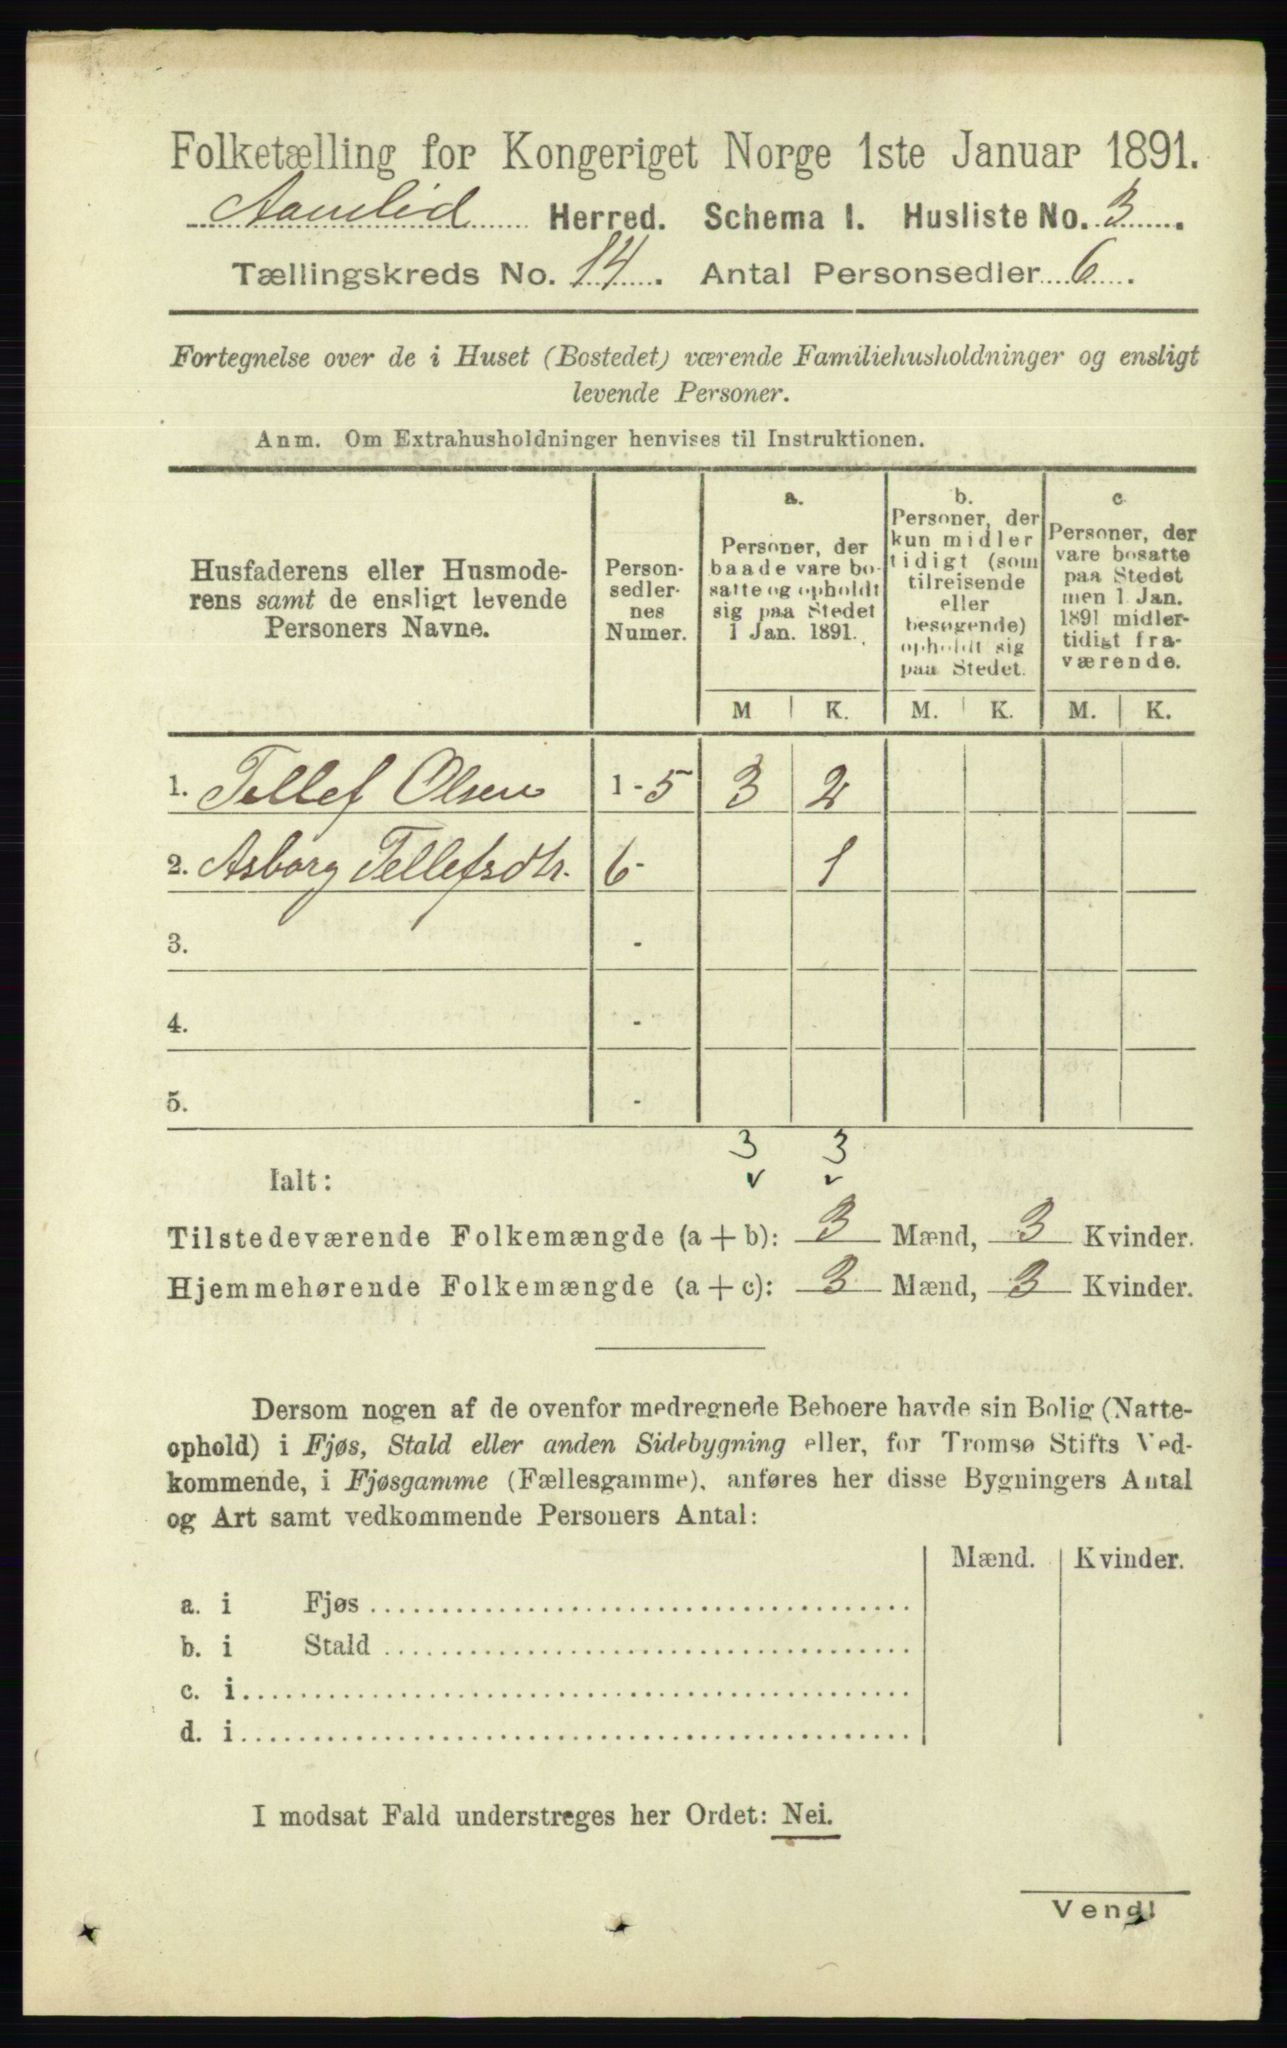 Folketælling for Kongeriget Norge 1ste Januar 1891.
Aamlid Herred. Schema I. Husliste No. 3
Tællingskreds No. 14. Antal Personsedler 6.
Fortegnelse over de i Huset (Bostedet) værende Familiehusholdninger og ensligt
levende Personer.
Anm. Om Extrahusholdninger henvises til Instruktionen.
Husfaderens eller Husmode-
rens samt de ensligt levende
Personers Navne.
Person-
sedler-
nes
Numer.
a.
Personer, der
baade vare bo-
satte og opholdt
sig paa Stedet
1 Jan. 1891.
b.
Personer, der
kun midler
tidigt (som
tilreisende
eller
besøgende)
opholdt sig
paa Stedet.
c
Personer, der
vare bosatte
paa Stedet
men 1 Jan.
1891 midler-
tidigt fra-
værende.
M K. M. K. M. K.
1. Tellef Olsen 1-5 3 2
2. Asborg Tellefsdtr. 6- 1
3. -
4. -
5. -
3 3
Ialt: v v
Tilstedeværende Folkemængde (a + b): 3 Mænd, 3 Kvinder.
Hjemmehørende Folkemængde (a + c): 3 Mænd, 3 Kvinder.
Dersom nogen af de ovenfor medregnede Beboere havde sin Bolig (Natte-
ophold) i Fjøs, Stald eller anden Sidebygning eller, for Tromsø Stifts Ved-
kommende, i Fjøsgamme (Fællesgamme), anføres her disse Bygningers Antal
og Art samt vedkommende Personers Antal:
Mænd. Kvinder.
a. i Fjøs
b. i Stald
c. i
d. i
I modsat Fald understreges her Ordet: Nei.
Vend!